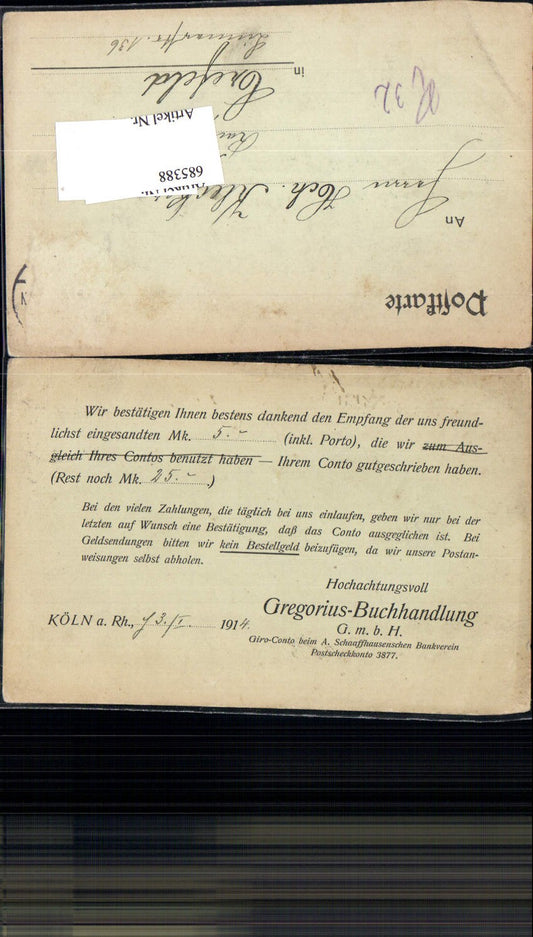 Postkarte
An
Herrn Hch.
in Crefeld
136
32
Artikel Nr.
Artikel Nr.
685388
Wir bestätigen Ihnen bestens dankend den Empfang der uns freund-
lichst eingesandten Mk. 5.- (inkl. Porto), die wir zum Aus-
gleich Ihres Contos benutzt haben — Ihrem Conto gutgeschrieben haben.
(Rest noch Mk. 25.-.)
Bei den vielen Zahlungen, die täglich bei uns einlaufen, geben wir nur bei der
letzten auf Wunsch eine Bestätigung, daß das Conto ausgeglichen ist. Bei
Geldsendungen bitten wir kein Bestellgeld beizufügen, da wir unsere Postan-
weisungen selbst abholen.
Hochachtungsvoll
Gregorius-Buchhandlung
KÖLN a. Rh., 1914.
G. m. b. H.
Giro-Conto beim A. Schaaffhausenschen Bankverein
Postscheckkonto 3877.